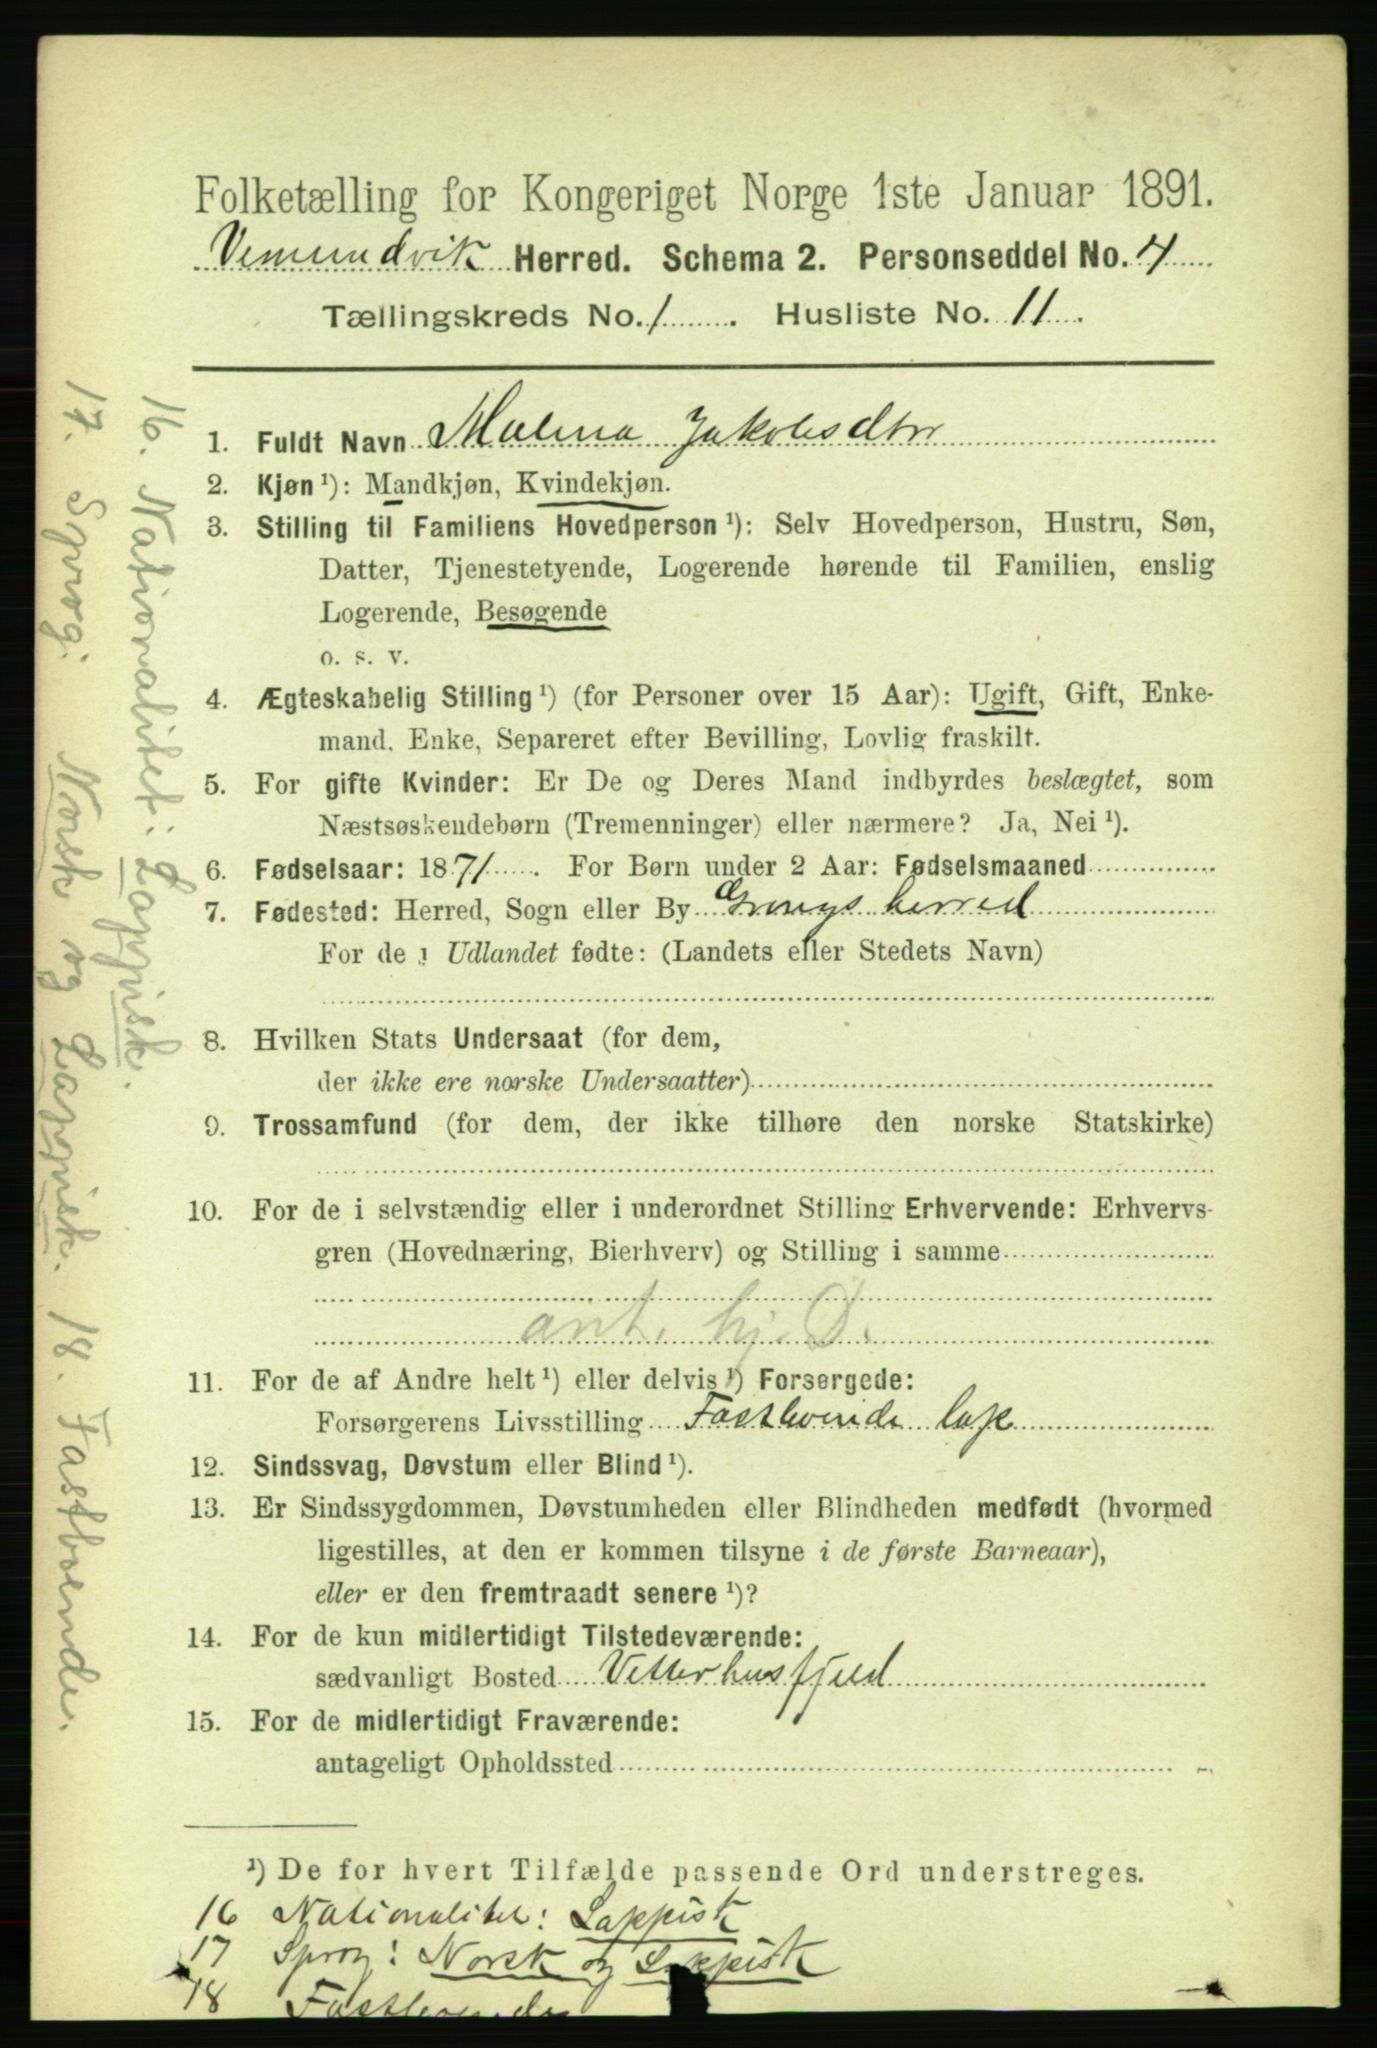 Folketælling for Kongeriget Norge 1ste Januar 1891.
Vemundvik Herred. Schema 2. Personseddel No. 4
Tællingskreds No. 1. Husliste No. 11.
1. Fuldt Navn Malena Jakobsdtr
2. Kjøn ¹): Mandkjøn, Kvindekjøn.
3. Stilling til Familiens Hovedperson ¹): Selv Hovedperson, Hustru, Søn,
Datter, Tjenestetyende, Logerende hørende til Familien, enslig
Logerende, Besøgende
o. s. v.
4. Ægteskabelig Stilling ¹) (for Personer over 15 Aar): Ugift, Gift, Enke-
mand. Enke, Separeret efter Bevilling, Lovlig fraskilt.
5. For gifte Kvinder: Er De og Deres Mand indbyrdes beslægtet, som
Næstsøskendebørn (Tremenninger) eller nærmere? Ja, Nei ¹).
6. Fødselsaar: 1871. For Børn under 2 Aar: Fødselsmaaned
7. Fødested: Herred, Sogn eller By Grongs herred
For de i Udlandet fødte: (Landets eller Stedets Navn)
8. Hvilken Stats Undersaat (for dem,
der ikke ere norske Undersaatter)
9. Trossamfund (for dem, der ikke tilhøre den norske Statskirke)
10. For de i selvstændig eller i underordnet Stilling Erhvervende: Erhvervs-
gren (Hovednæring, Bierhverv) og Stilling i samme
ant. hj. D.
11. For de af Andre helt ¹) eller delvis ¹) Forsørgede:
Forsørgerens Livsstilling Fastboende lap
12. Sindssvag, Døvstum eller Blind ¹).
13. Er Sindssygdommen, Døvstumheden eller Blindheden medfødt (hvormed
ligestilles, at den er kommen tilsyne i de første Barneaar),
eller er den fremtraadt senere ¹)?
14. For de kun midlertidigt Tilstedeværende:
sædvanligt Bosted Vetterhusfjeld
15. For de midlertidigt Fraværende:
antageligt Opholdssted
¹) De for hvert Tilfælde passende Ord understreges.
16 Nationalitet: Lappisk
17 Sprog: Norsk og Lappisk
18 Fastboende
16. Nationalitet: Lappisk.
17. Sprog: Norsk og Lappisk. 18. Fastboende.